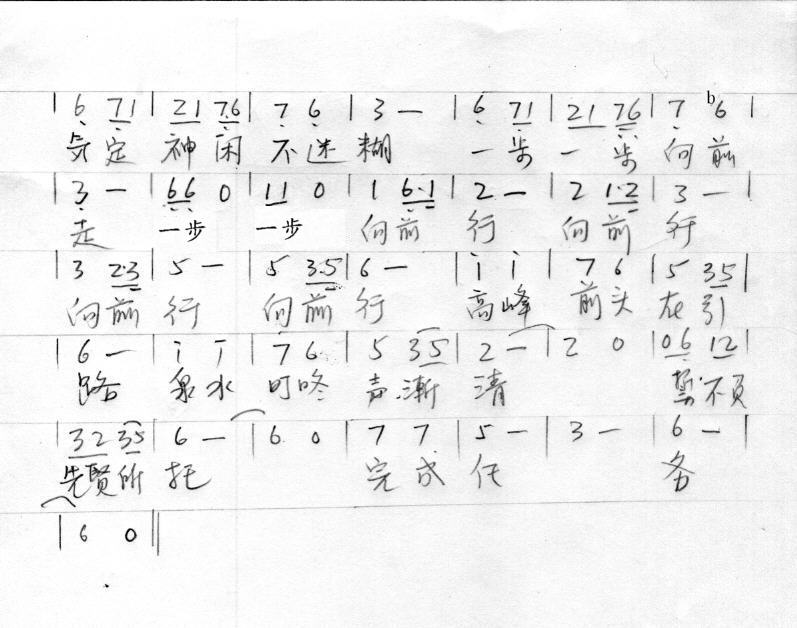 | 6 71 | 21 76 | 7 6 | 3 — | 6 71 | 21 76 | 7 b6 |
气定 神闲 不迷糊 一步一步 向前
| 3 — | 66 0 | 11 0 | 1 6·1 | 2 — | 2 1·2 | 3 — |
走 一步 一步 向前 行 向前 行
| 3 2·3 | 5 — | 5 3·5 | 6 — | i i | 7 6 | 5 35 |
向前 行 向前 行 高峰 前头 在引
| 6 — | i i | 7 6 | 5 35 | 2 — | 2 0 | 06 12 |
路 泉水 叮咚 声渐 清 誓不负
| 32 35 | 6 — | 6 0 | 7 7 | 5 — | 3 — | 6 — |
先贤所 托 完成 任 务
| 6 0 ||